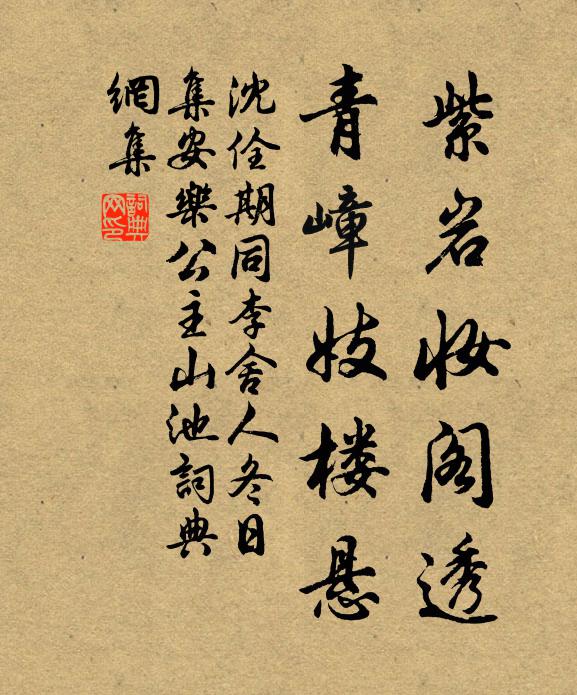 紫岩妆阁透
青嶂妓楼悬
沈佺期同李舍人冬日
集安樂公主山池詞典
網集
詞典网印